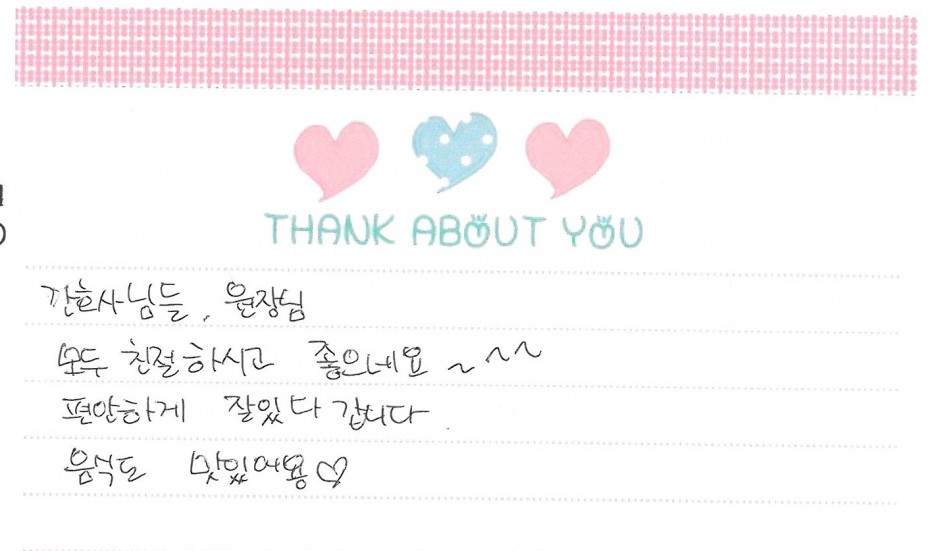 THANK ABOUT YOU
간호사님들, 원장님
모두 친절하시고 좋으네요 ~ ~~
편안하게 잘있다 갑니다.
음식도 맛있어용♡